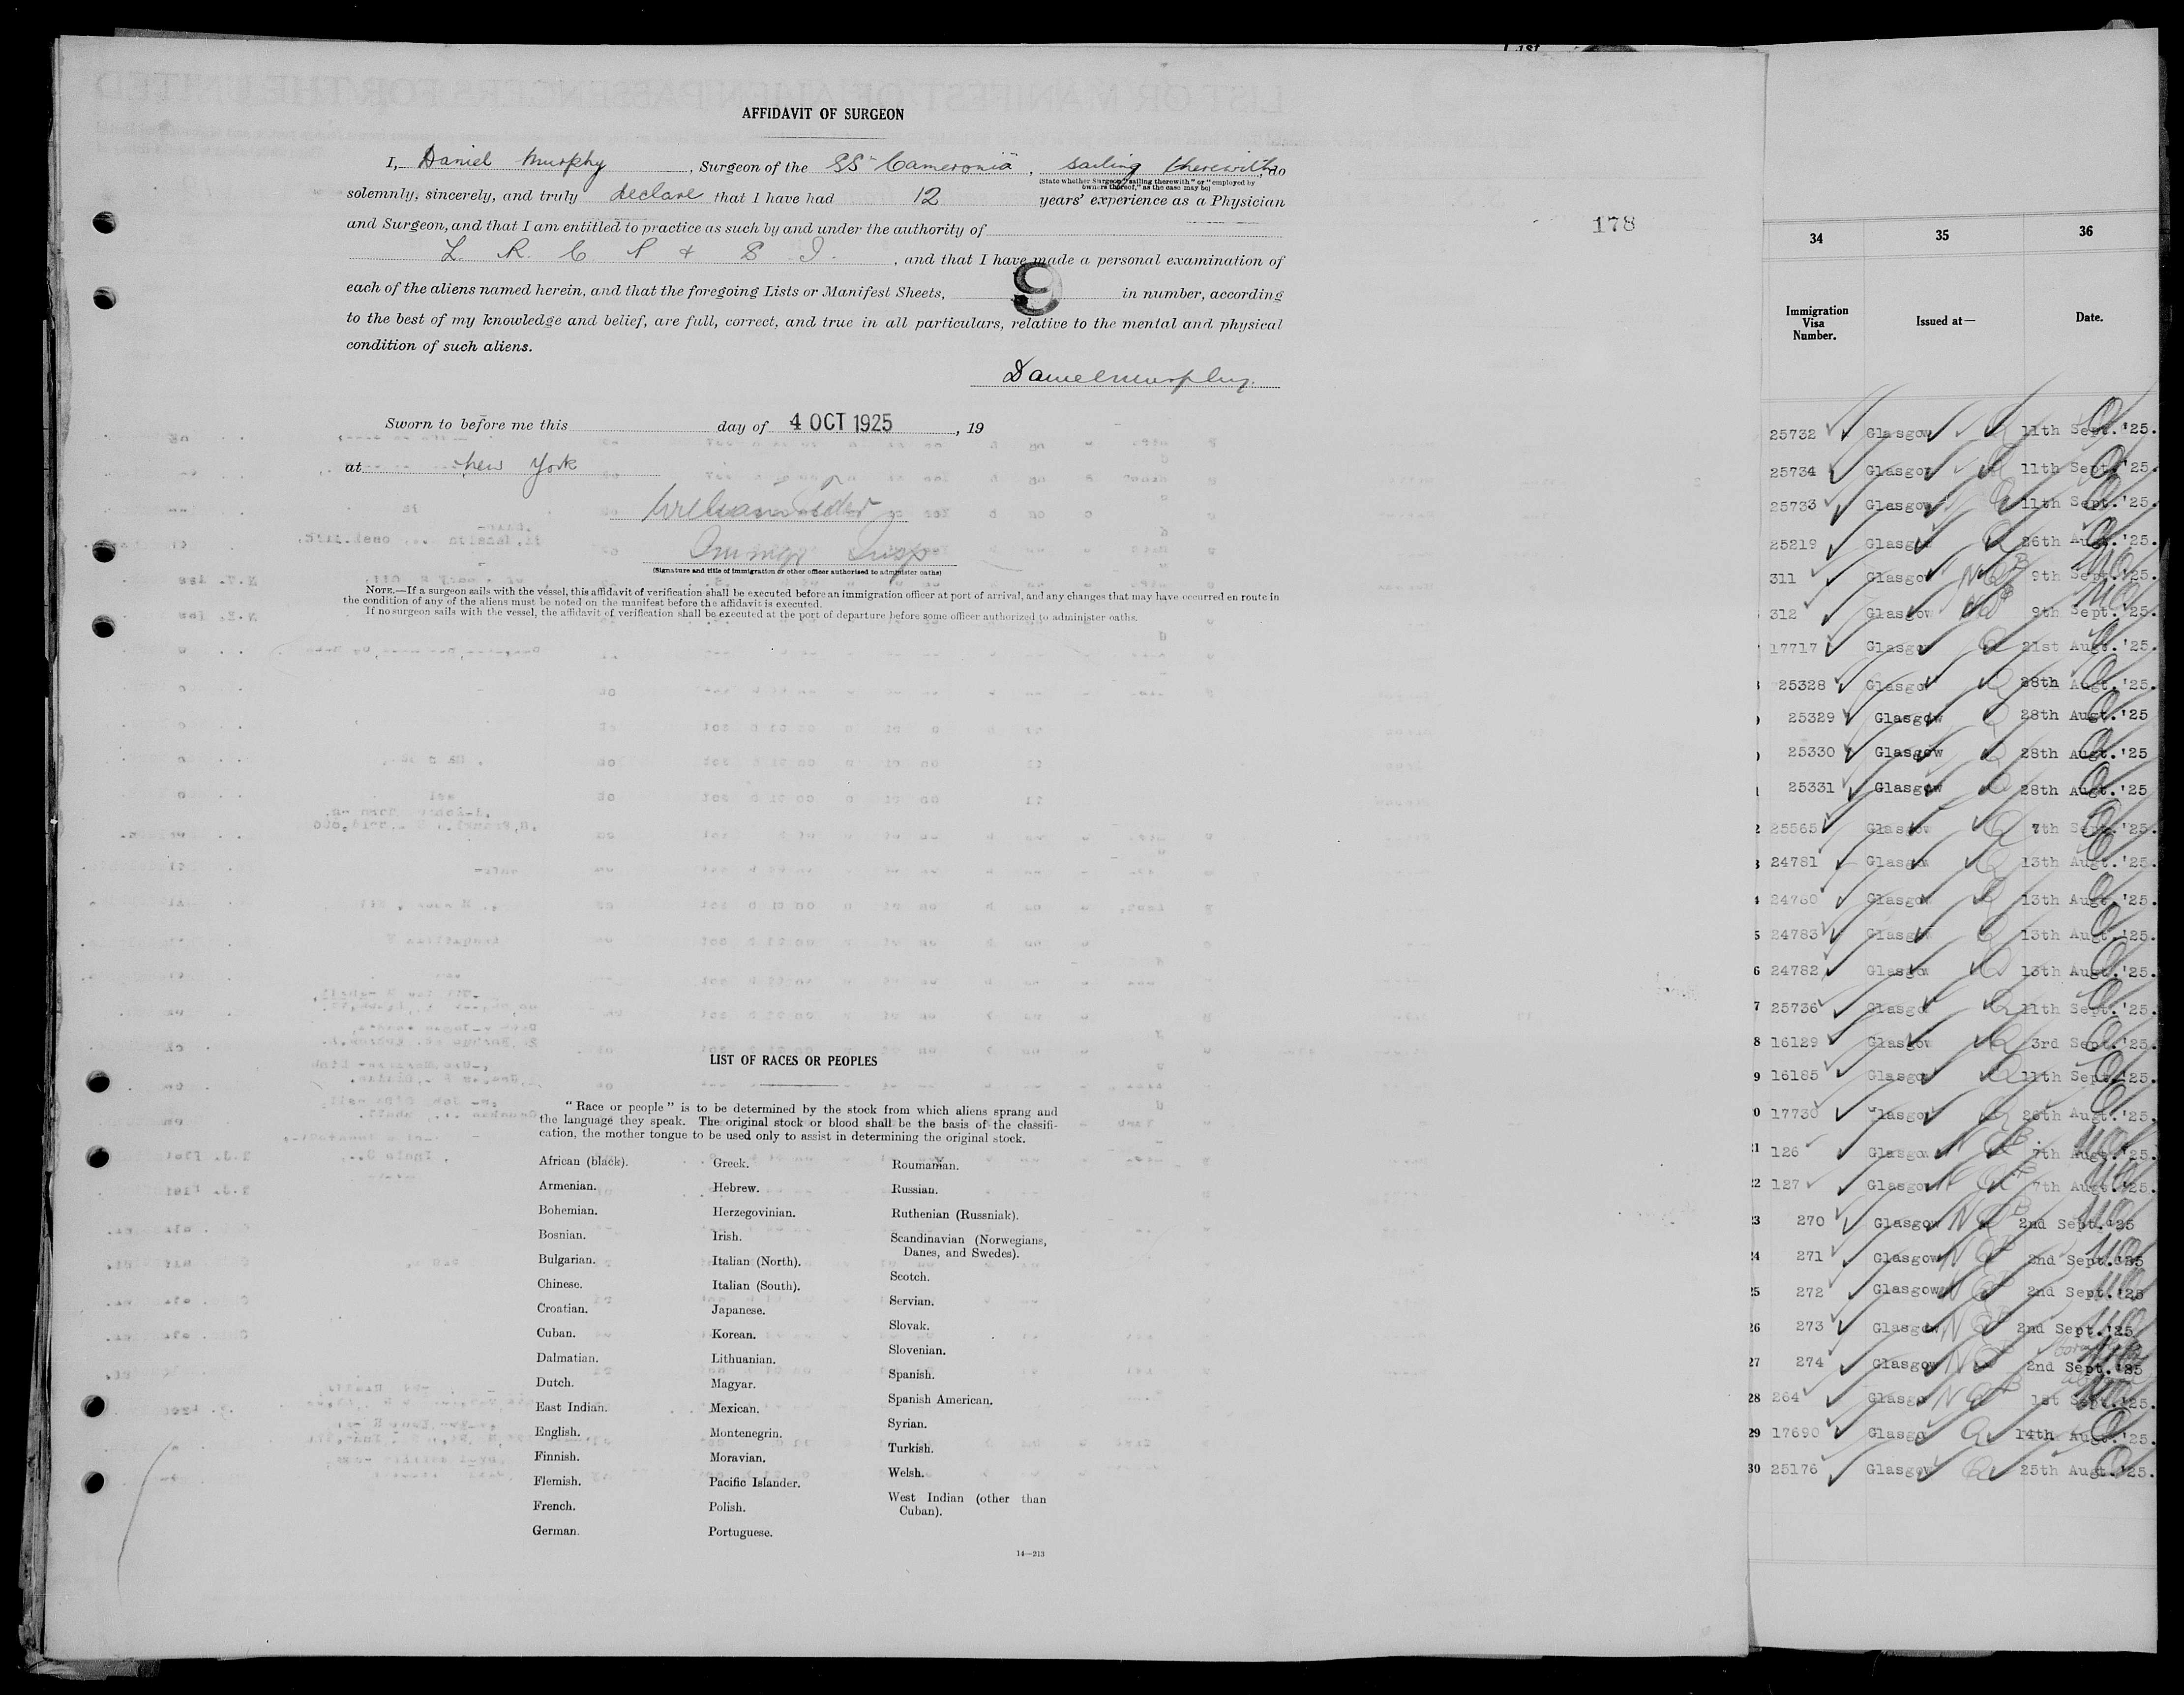 AFFIDAVIT OF SURGEON
I, Daniel Murphy, Surgeon of the SS Cameronia, sailing therewith, do
(State whether Surgeon "sailing therewith" or "employed by
owners thereof," as the case may be)
solemnly, sincerely, and truly declare that I have had 12 years' experience as a Physician
and Surgeon, and that I am entitled to practice as such by and under the authority of
L. R. C. P & S I., and that I have made a personal examination of
each of the aliens named herein, and that the foregoing Lists or Manifest Sheets, 9 in number, according
to the best of my knowledge and belief, are full, correct, and true in all particulars, relative to the mental and physical
condition of such aliens.
Daniel Murphy.
Sworn to before me this day of 4 OCT 1925, 19
at New York
(Signature and title of immigration or other officer authorised to administer oaths)
NOTE.—If a surgeon sails with the vessel, this affidavit of verification shall be executed before an immigration officer at port of arrival, and any changes that may have occurred en route in
the condition of any of the aliens must be noted on the manifest before the affidavit is executed.
If no surgeon sails with the vessel, the affidavit of verification shall be executed at the port of departure before some officer authorized to administer oaths.
178
LIST OF RACES OR PEOPLES
"Race or people" is to be determined by the stock from which aliens sprang and
the language they speak. The original stock or blood shall be the basis of the classifi-
cation, the mother tongue to be used only to assist in determining the original stock.
African (black).
Armenian.
Bohemian.
Bosnian.
Bulgarian.
Chinese.
Croatian.
Cuban.
Dalmatian.
Dutch.
East Indian.
English.
Finnish.
Flemish.
French.
German.
Greek.
Hebrew.
Herzegovinian.
Irish.
Italian (North).
Italian (South).
Japanese.
Korean.
Lithuanian.
Magyar.
Mexican.
Montenegrin.
Moravian.
Pacific Islander.
Polish.
Portuguese.
Roumanian.
Russian.
Ruthenian (Russniak).
Scandinavian (Norwegians,
Danes, and Swedes).
Scotch.
Servian.
Slovak.
Slovenian.
Spanish.
Spanish American.
Syrian.
Turkish.
Welsh.
West Indian (other than
Cuban).
14—213
34 35 36
Immigration
Visa
Number.
Issued at—
Date.
25732 Glasgow 11th Sept. '25.
25734 Glasgow 11th Sept. '25.
25733 Glasgow 11th Sept. '25.
25219 Glasgow 26th Augt. '25.
311 Glasgow 9th Sept. '25.
312 Glasgow 9th Sept. '25.
17717 Glasgow 21st Augt. '25.
25328 Glasgow 28th Augt. '25.
25329 Glasgow 28th Augt. '25
25330 Glasgow 28th Augt. '25
25331 Glasgow 28th Augt. '25
2 25565 Glasgow 7th Sept. '25.
3 24781 Glasgow 13th Augt. '25.
4 24780 Glasgow 13th Augt. '25.
5 24783 Glasgow 13th Augt. '25.
6 24782 Glasgow 13th Augt. '25.
7 25736 Glasgow 11th Sept. '25.
8 16129 Glasgow 3rd Sept. '25.
9 16185 Glasgow 11th Sept. '25.
0 17730 Glasgow 26th Augt. '25.
21 126 Glasgow 7th Augt. '25.
22 127 Glasgow 7th Augt. '25.
23 270 Glasgow 2nd Sept. '25
24 271 Glasgow 2nd Sept. '25
25 272 Glasgow 2nd Sept. '25
26 273 Glasgow 2nd Sept. '25
27 274 Glasgow 2nd Sept. '25
28 264 Glasgow 1st Sept. '25.
29 17690 Glasgow 14th Augt. '25.
30 25176 Glasgow 25th Augt. '25.